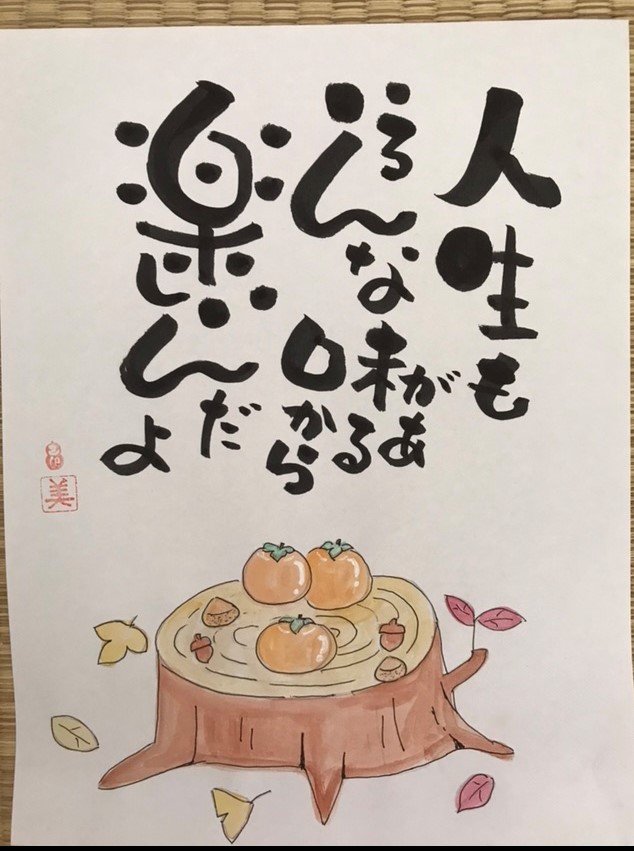 人生も
いろんな味があるから
楽しいんだよ
美